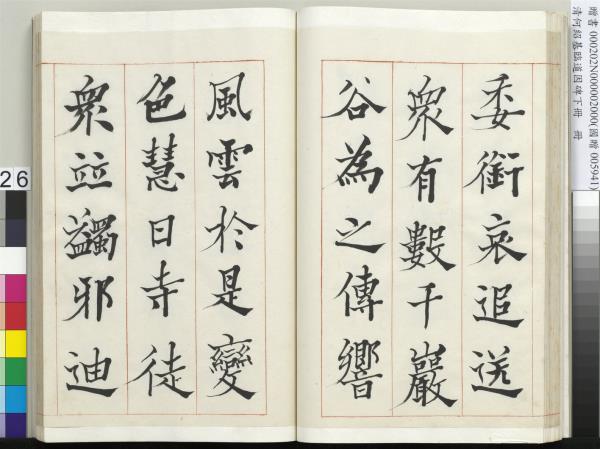 贈書 000202N000002000(國贈 005941)
清何紹基臨道因碑下冊 冊
委銜哀追送
衆有數千巖
谷為之傳響
風雲於是變
色慧日寺徒
衆竝蠲邪迪
26